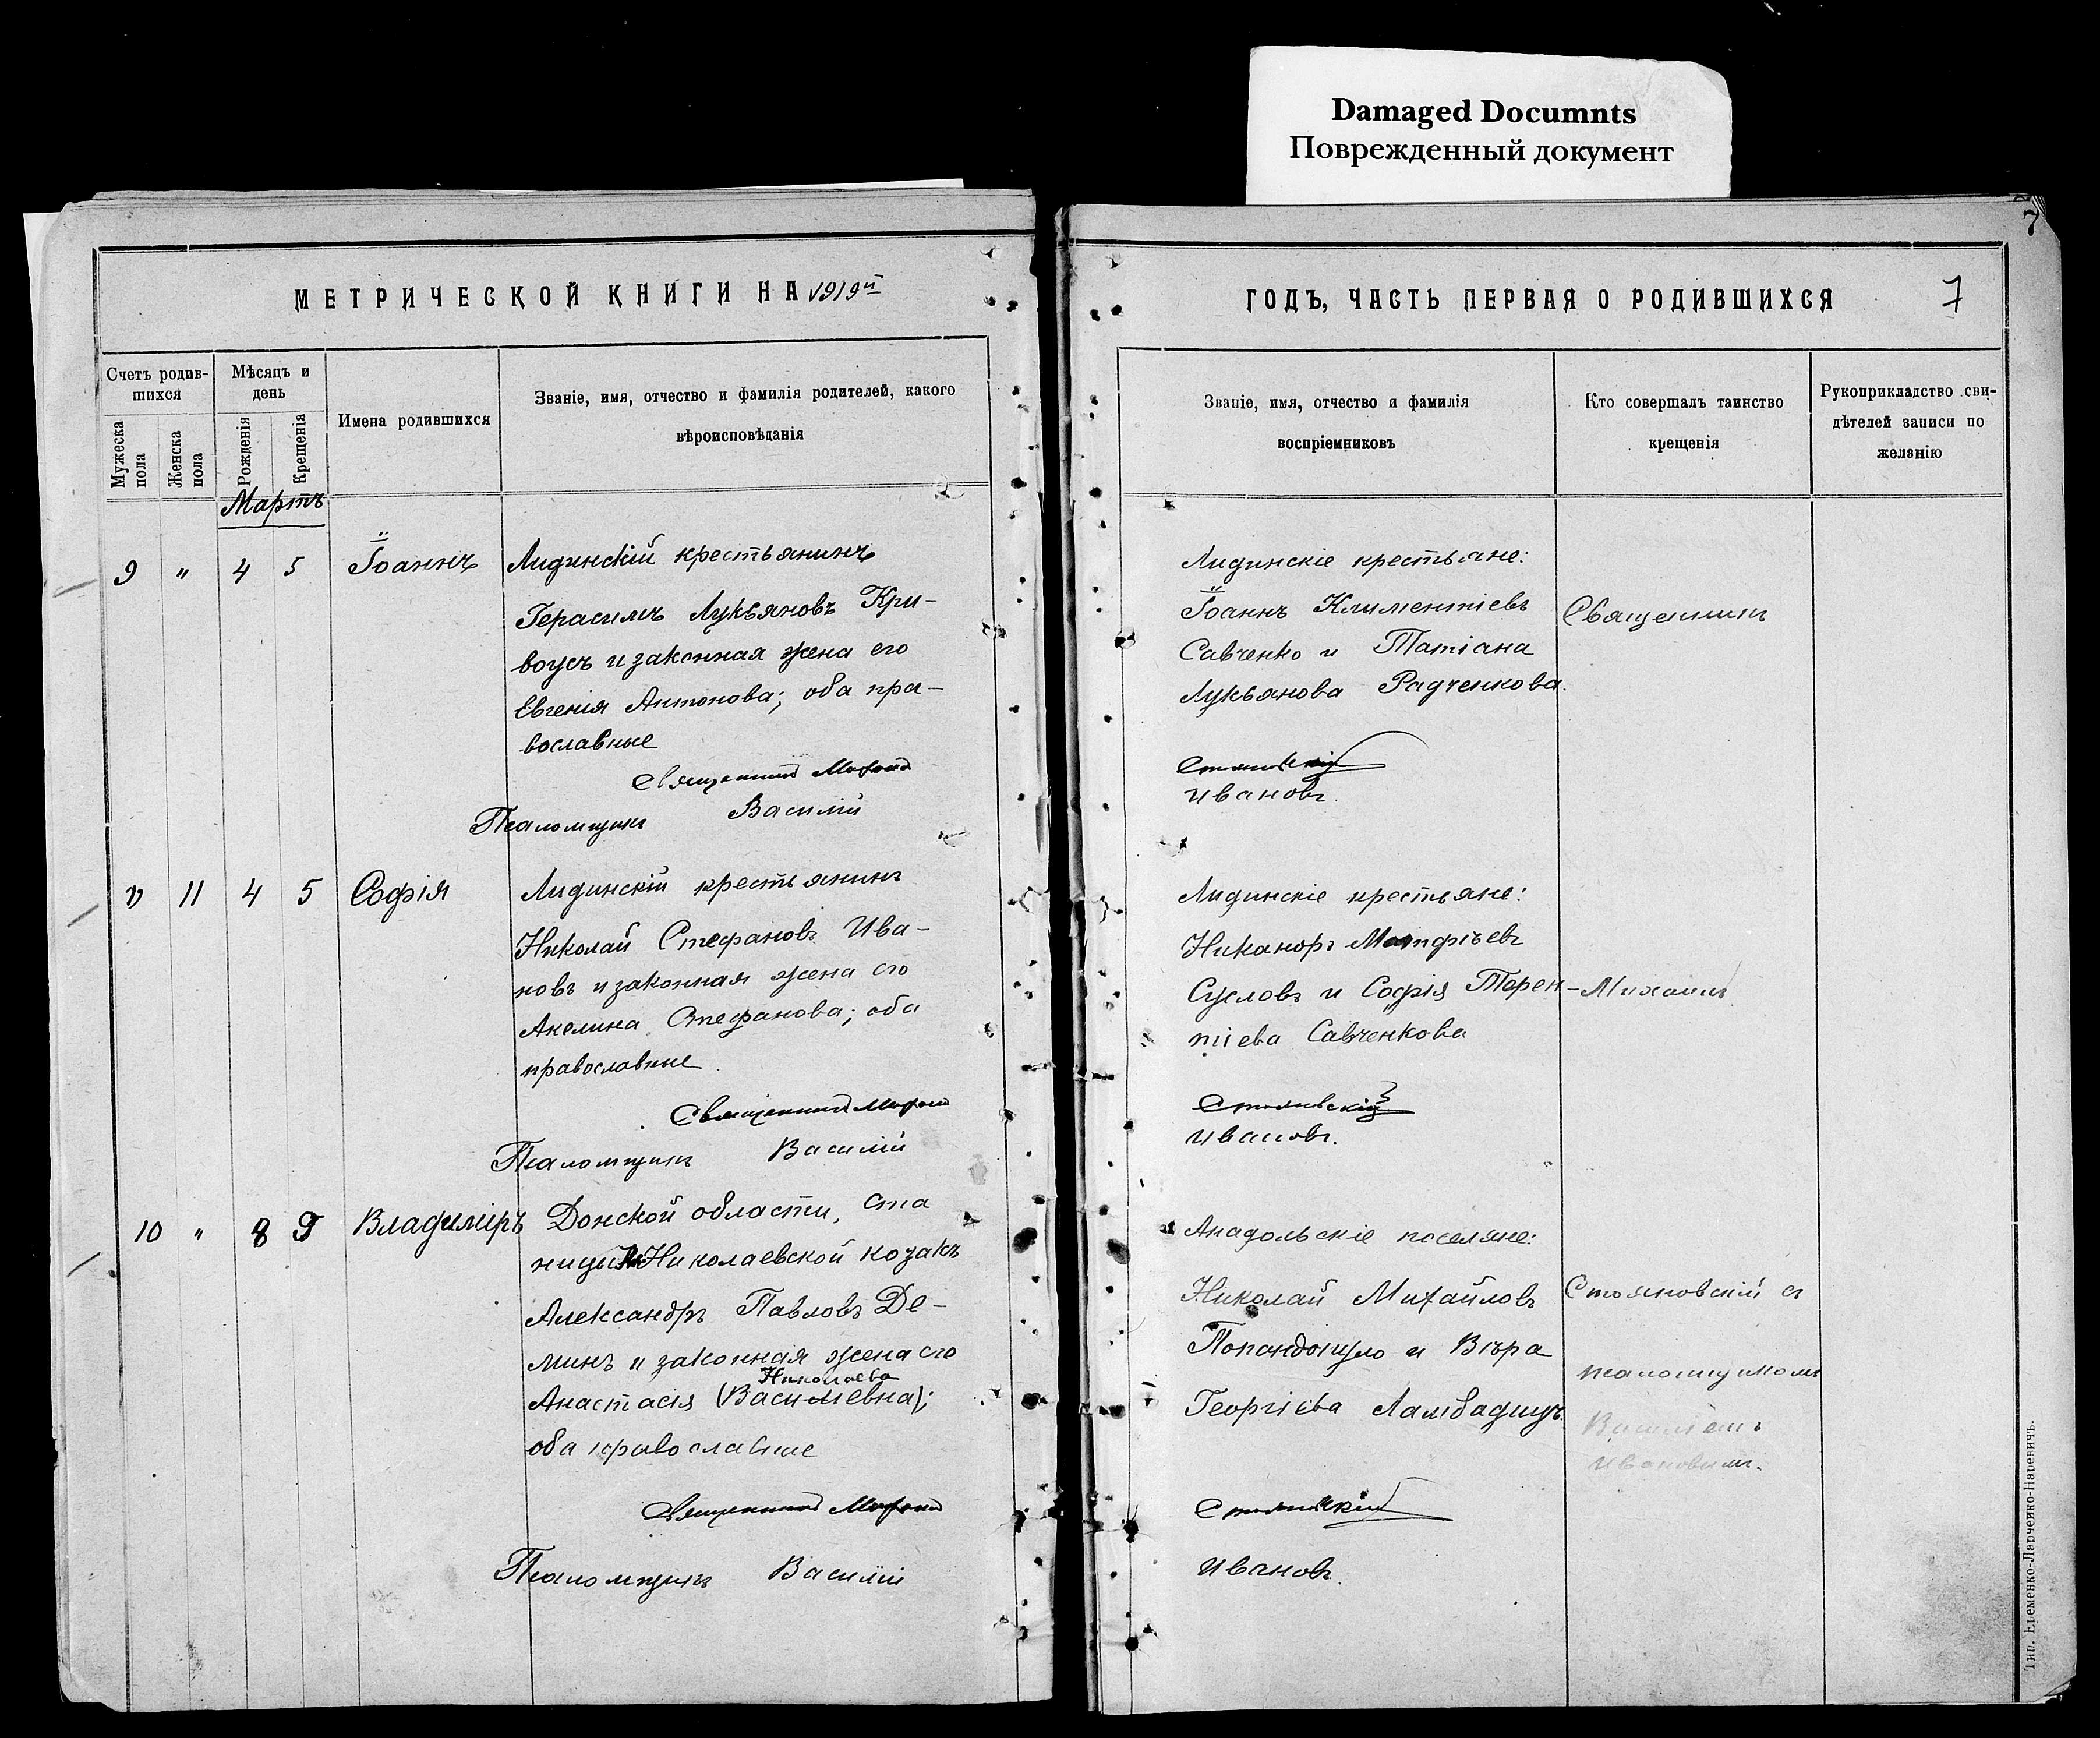 Damaged Documnts
Поврежденный документ
7
МЕТРИЧЕСКОЙ КНИГИ НА 1919й
Счетъ родив-
шихся
Мѣсяцъ и
день
Имена родившихся
Званіе, имя, отчество и фамилія родителей, какого
вѣроисповѣданія
Мужеска
пола
Женска
пола
Рожденія
Крещенія
Мартъ
9 " 4 5 Іоаннъ Лидинскій крестьянинъ
Герасимъ Лукьяновъ Кри-
воусъ и законная жена его
Евгенія Антонова; оба пра-
вославные
Священникъ
Псаломщикъ Василій
" 11 4 5 Софія Лидинскій крестьянинъ
Николай Стефановъ Ива-
новъ и законная жена его
Акелина Стефанова; оба
православные
Священникъ
Псаломщикъ Василій
10 " 8 9 Владиміръ Донской области, ста
ницы Николаевской козакъ
Александръ Павловъ Де-
минъ и законная жена его
Николаева
Анастасія (Васильевна);
оба православные
Священникъ
Псаломщикъ Василій
ГОДЪ, ЧАСТЬ ПЕРВАЯ О РОДИВШИХСЯ
7
Званіе, имя, отчество и фамилія
воспріемниковъ
Кто совершалъ таинство
крещенія
Рукоприкладство сви-
дѣтелей записи по
желанію
Лидинскіе крестьяне:
Іоаннъ Климентіевъ
Священникъ
Савченко и Татіана
Лукьянова Радченкова.
Стояновскій
Ивановъ.
Лидинскіе крестьяне:
Никаноръ
Сусловъ и Софія Терен-
Михаилъ
тіева Савченкова
Стояновскій
Ивановъ.
Анадольскіе поселяне:
Николай Михайловъ
Стояновскій съ
Попандопуло и Вѣра
псаломщикомъ
Георгіева
Василіемъ
Ивановымъ.
Стояновскій
Ивановъ.
Тип. Еременко-Ларченко-Царевичъ.